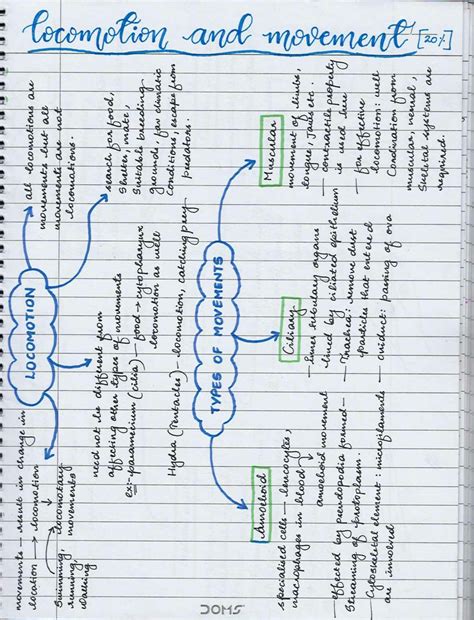 locomotion and movement [20%]
LOCOMOTION
movements — result in change in
location → locomotion
↓
locomotory
movements
Swimming,
running,
walking
all locomotions are
movements but all
movements are not
locomotions.
search for food,
Shelter, mate,
Suitable breeding
grounds, fav climatic
conditions, escape from
predators.
need not be different from
affecting other types of movements
ex:- paramecium (cilia) → food → cytopharynx
locomotion as well
Hydra (Tentacles) → locomotion, catching prey
TYPES OF MOVEMENTS
Amoeboid
specialised cells — leucocytes,
macrophages in blood
↓
amoeboid movement
— effected by pseudopodia formed —
Streaming of protoplasm.
— Cytoskeletal element: microfilaments
are involved
Ciliary
— Inner tubulary organs
lined by ciliated epithelium
— Trachea: remove dust
particles that entered
— oviduct: passing of ova
Muscular
movement of limbs,
tongues, jaws etc.
— contractile property
is used here
— for effective
locomotion: well
Cordination from
muscular, neural,
Skeletal systems are
required.
DOMS